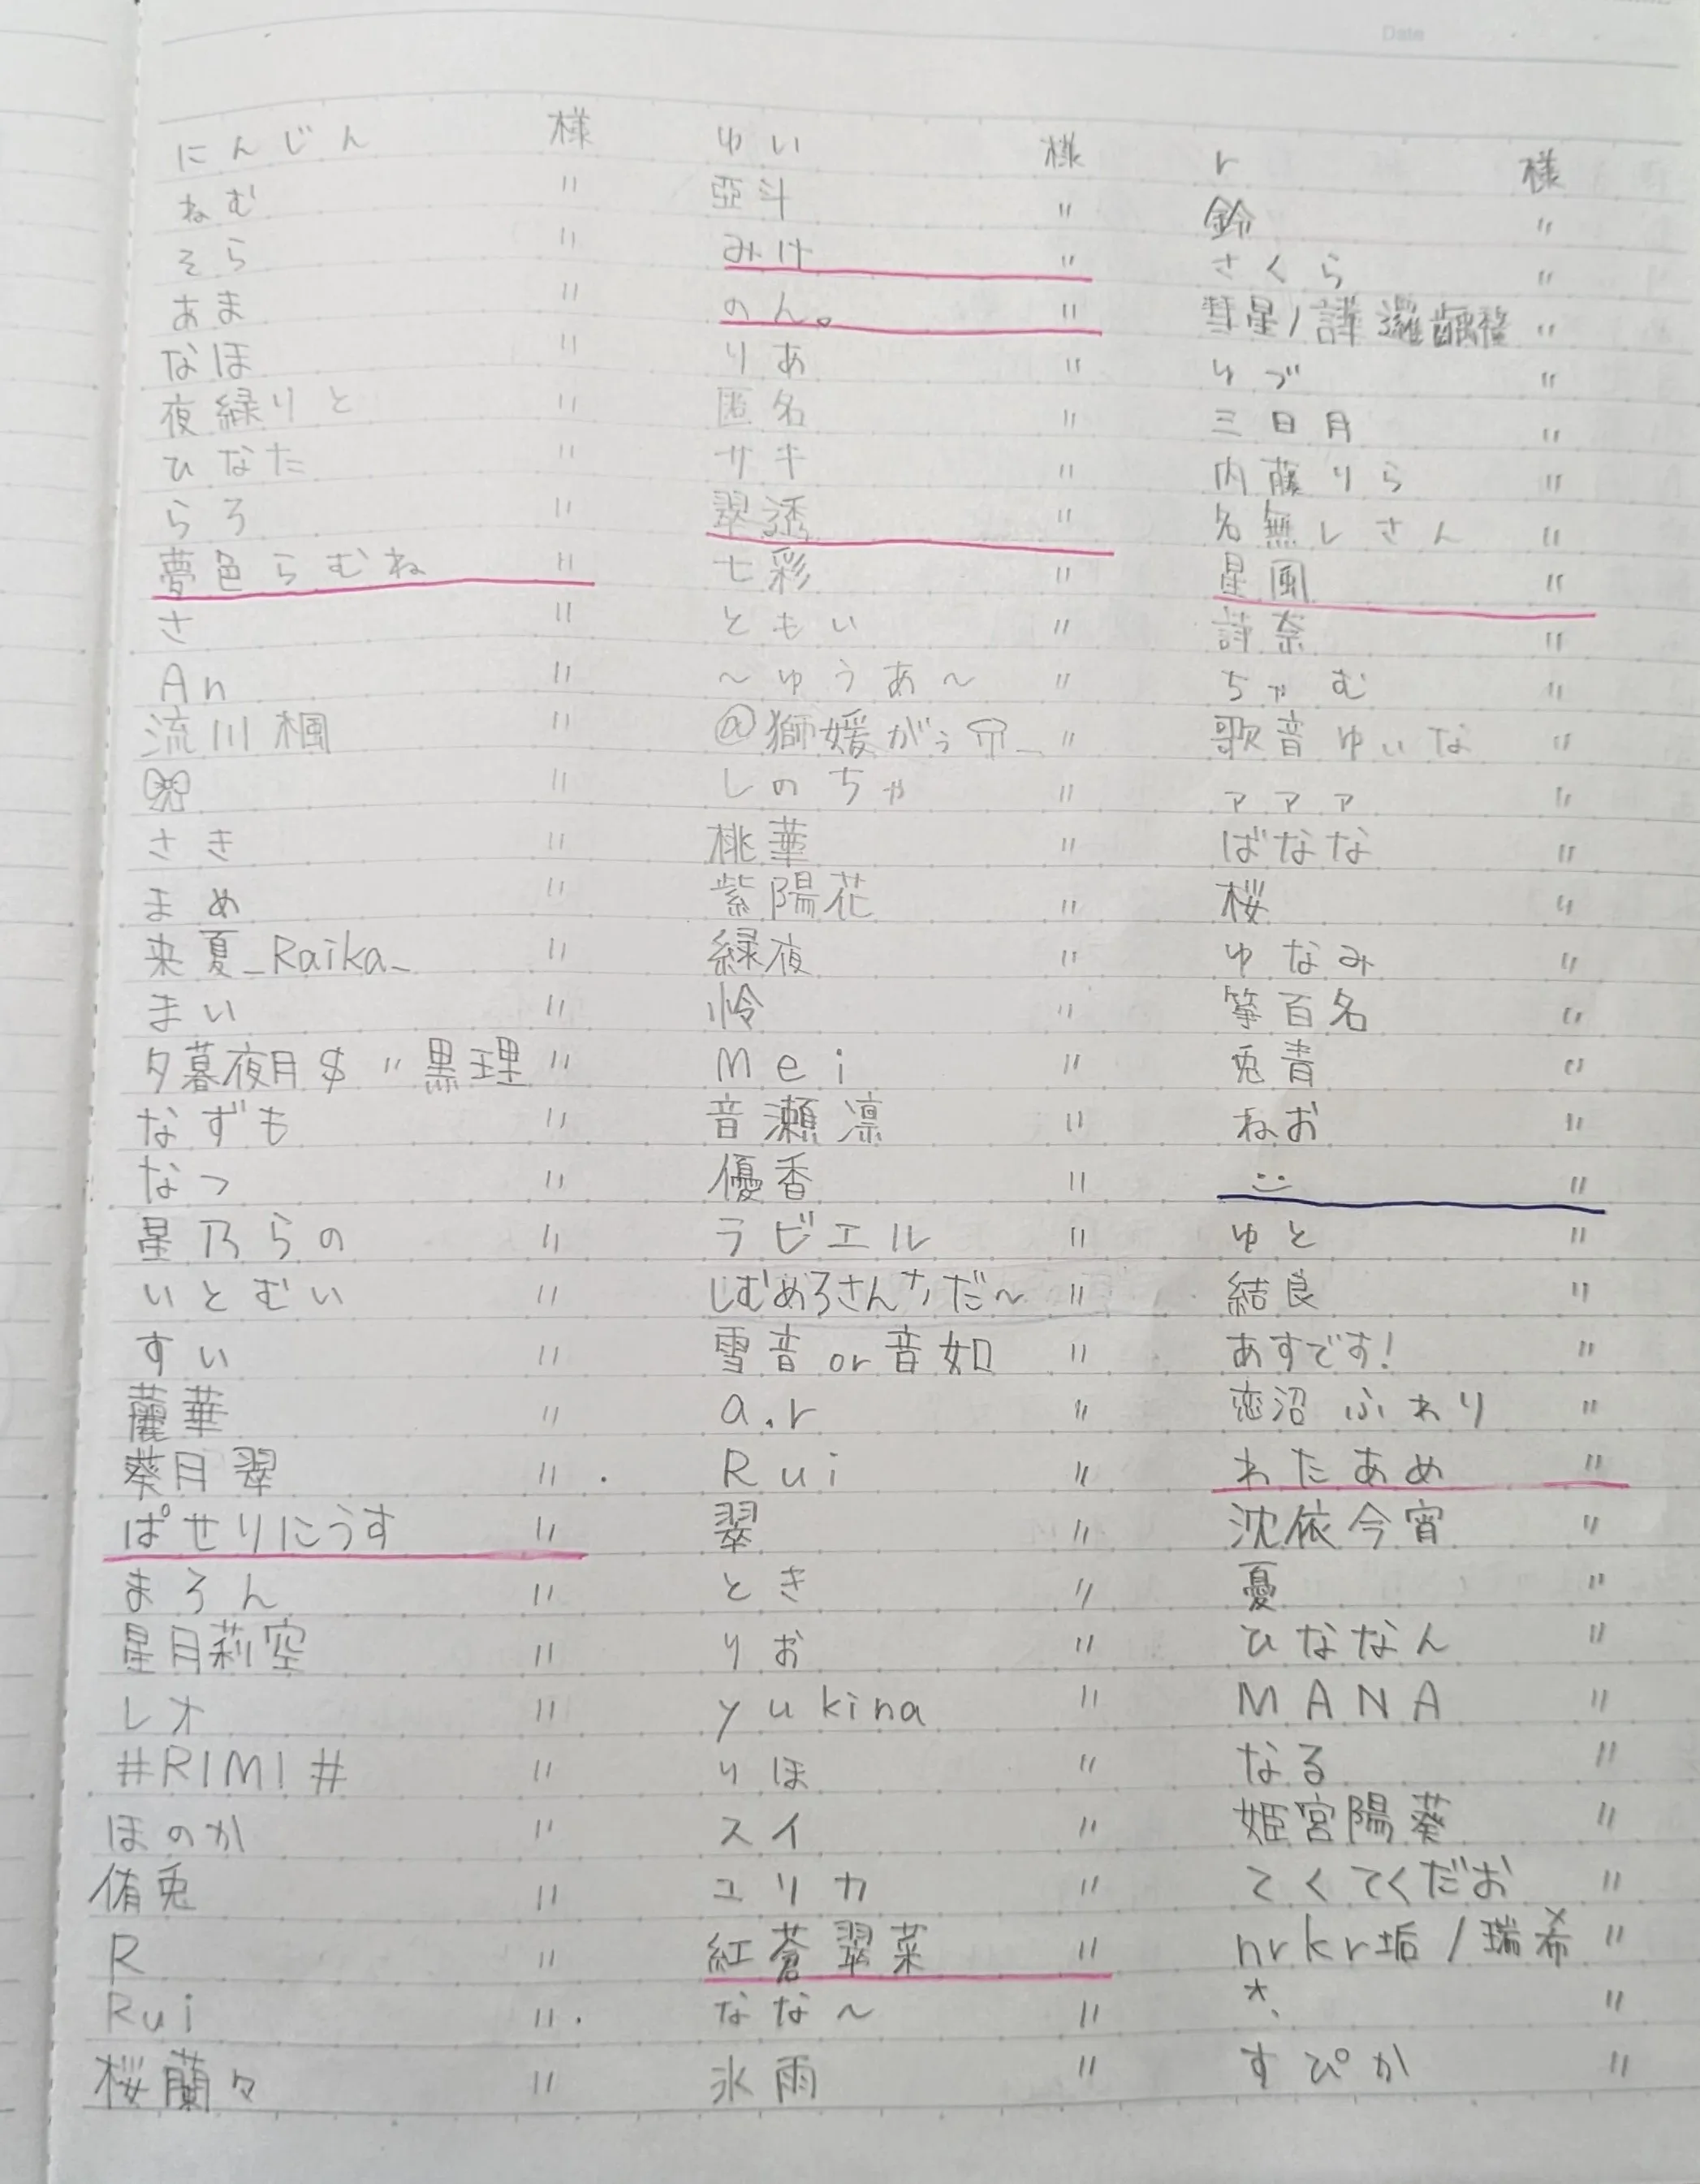 Date
にんじん 様
ねむ 〃
そら 〃
あま 〃
なほ 〃
夜緑りと 〃
ひなた 〃
らろ 〃
夢色らむね 〃
さ 〃
An 〃
流川楓 〃
〃
さき 〃
まめ 〃
来夏_Raika_ 〃
まい 〃
夕暮夜月$〃黒理 〃
なずも 〃
なつ 〃
星乃らの 〃
いとむい 〃
すい 〃
麗華 〃
葵月翠 〃
ぱせりにうす 〃
まろん 〃
星月莉空 〃
レオ 〃
#RIMI# 〃
ほのか 〃
侑兎 〃
R 〃
Rui 〃
桜蘭々 〃
ゆい 様
亞斗 〃
みけ 〃
のん。 〃
りあ 〃
匿名 〃
サキ 〃
翠透 〃
七彩 〃
ともい 〃
～ゆうあ～ 〃
@獅媛がぅ 〃
しのちゃ 〃
桃華 〃
紫陽花 〃
緑夜 〃
怜 〃
Mei 〃
音瀬凛 〃
優香 〃
ラビエル 〃
しむめろさんナノだ～ 〃
雪音or音如 〃
a.r 〃
Rui 〃
翠 〃
とき 〃
りお 〃
yukina 〃
りほ 〃
スイ 〃
ユリカ 〃
紅蒼翠菜 〃
なな～ 〃
氷雨 〃
r 様
鈴 〃
さくら 〃
彗星/ 〃
ゆづ 〃
三日月 〃
内藤りら 〃
名無しさん 〃
星風 〃
詩奈 〃
ちゃむ 〃
歌音ゆいな 〃
ァァァ 〃
ばなな 〃
桜 〃
ゆなみ 〃
箏百名 〃
兎青 〃
ねお 〃
¨̮ 〃
ゆと 〃
結良 〃
あすです! 〃
恋沼 ふわり 〃
わたあめ 〃
沈依今宵 〃
憂 〃
ひななん 〃
MANA 〃
なる 〃
姫宮陽葵 〃
てくてくだお 〃
nrkr垢/瑞希 〃
*. 〃
すぴか 〃